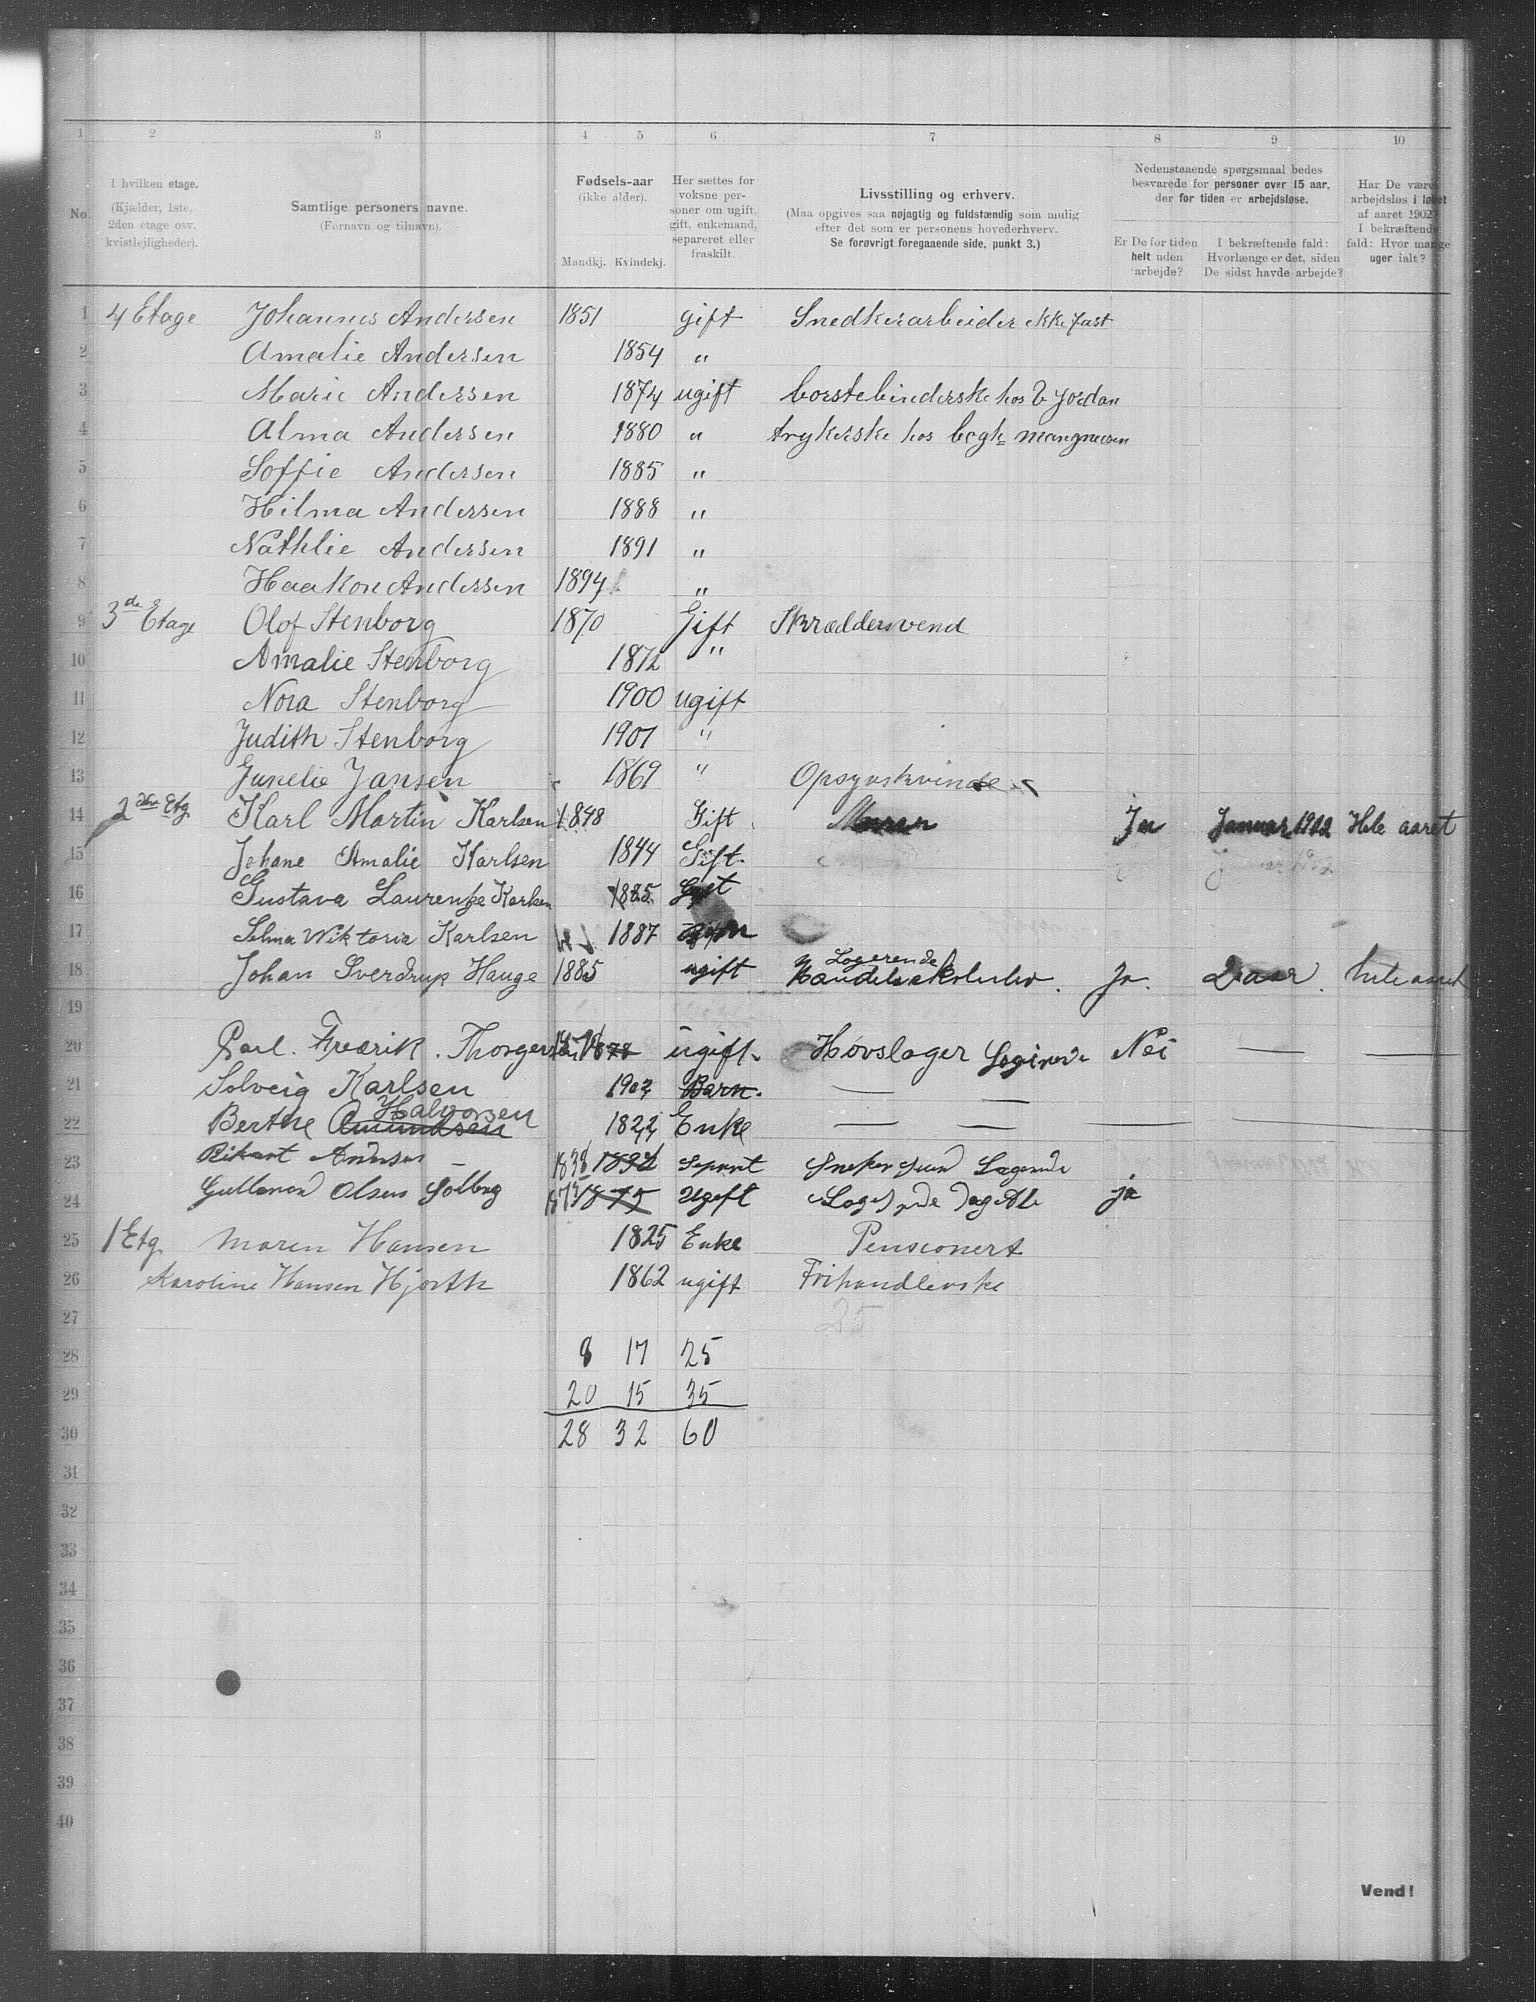 1 2 3 4 5 6 7 8 9 10
No.
I hvilken etage.
(Kjælder, 1ste,
2den etage osv.
kvistlejligheder).
Samtlige personers navne.
(Fornavn og tilnavn).
Fødsels-aar
(ikke alder).
Mandkj. Kvindekj.
Her sættes for
voksne per-
soner om ugift,
gift, enkemand,
separeret eller
fraskilt.
Livsstilling og erhverv.
(Maa opgives saa nøjagtig og fuldstændig som mulig
efter det som er personens hovederhverv.
Se forøvrigt foregaaende side, punkt 3.)
Nedenstaaende spørgsmaal bedes
besvarede for personer over 15 aar,
der for tiden er arbejdsløse.
Er De for tiden
helt uden
arbejde?
I bekræftende fald:
Hvorlænge er det, siden
De sidst havde arbejde?
Har De været
arbejdsløs i løbet
af aaret 1902?
I bekræftende
fald: Hvor mange
uger ialt?
1 4 Etage Johannes Andersen 1851 gift Snedkerarbeider ikke fast
2 Amalie Andersen 1854 "
3 Marie Andersen 1874 ugift borstebinderske hos Jordan
4 Alma Andersen 1880 " trykerske hos
5 Soffie Andersen 1885 "
6 Hilma Andersen 1888 "
7 Nathlie Andersen 1891 "
8 Haakon Andersen 1894 "
9 3de Etage Olof Stenborg 1870 Gift Skræddersvend
10 Amalie Stenborg 1872 "
11 Nora Stenborg 1900 ugift
12 Judith Stenborg 1901 "
13 Junelie Jansen 1869 " Opsynskvinde
14 2den Etg Karl Martin Karlsen 1848 Gift Murer Ja Januar 1902 Hele aaret
15 Johane Amalie Karlsen 1844 Gift
16 Gustava Laurentze Karlsen 1885
17 Selma Wiktoria Karlsen 1887
18 Johan Sverdrup Hauge 1885 ugift Logerende Handelsskoleelev Ja. 2 aar. hele aaret
19
20 Carl. Fredrik. Thorgersen ugift. Hovslager Logerende Nei — —
21 Solveig Karlsen 1902 Barn. — —
22 Berthe Amundsen Halvorsen 1822 Enke — — — —
23 Rikart Andersen 1838 Seprert Logerende
24 Olsen Solberg 1875 Ugeft ja
25 1 Etg. Maren Hansen 1825 Enke Pensionert
26 Karoline Hansen Hjorth 1862 ugift Frihandlerske
27 25
28 8 17 25
29 20 15 35
30 28 32 60
31
32
33
34
35
36
37
38
39
40
Vend!